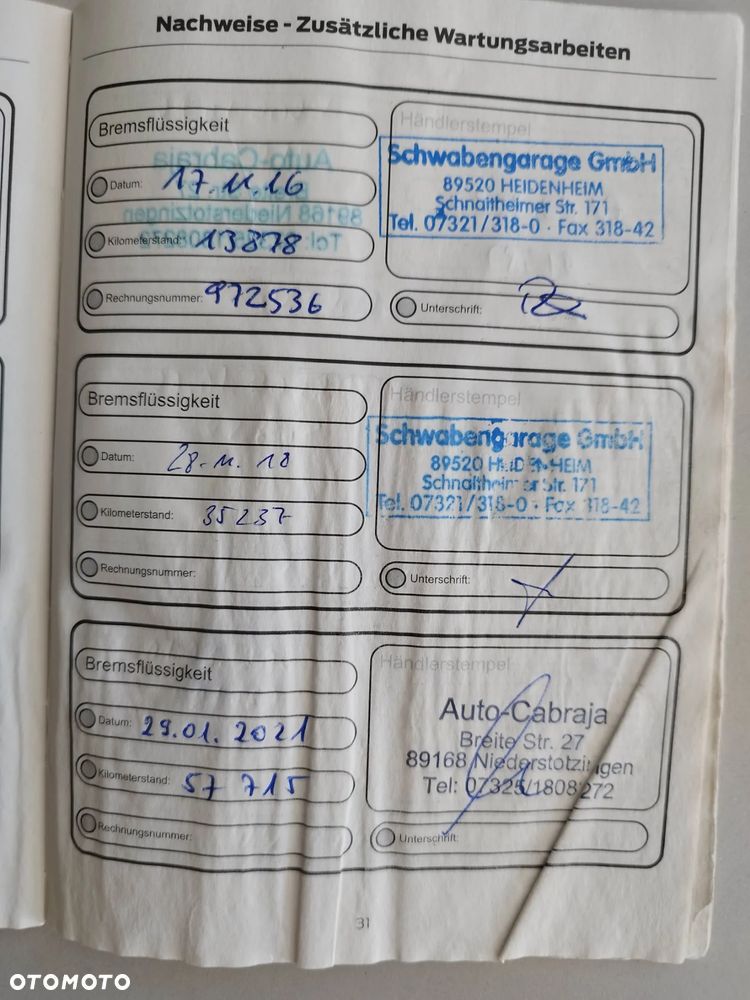 Nachweise - Zusätzliche Wartungsarbeiten
Bremsflüssigkeit
Datum: 17.11.16
Kilometerstand: 13878
Rechnungsnummer: 972536
Händlerstempel
Schwabengarage GmbH
89520 HEIDENHEIM
Schnaitheimer Str. 171
Tel. 07321/318-0 · Fax 318-42
Unterschrift:
Bremsflüssigkeit
Datum: 28.11.18
Kilometerstand: 35237
Rechnungsnummer:
Händlerstempel
Schwabengarage GmbH
89520 HEIDENHEIM
Schnaitheimer Str. 171
Tel. 07321/318-0 · Fax 318-42
Unterschrift:
Bremsflüssigkeit
Datum: 29.01.2021
Kilometerstand: 57 715
Rechnungsnummer:
Händlerstempel
Auto-Cabraja
Breite Str. 27
89168 Niederstotzingen
Tel: 07325/1808272
Unterschrift:
31
OTOMOTO